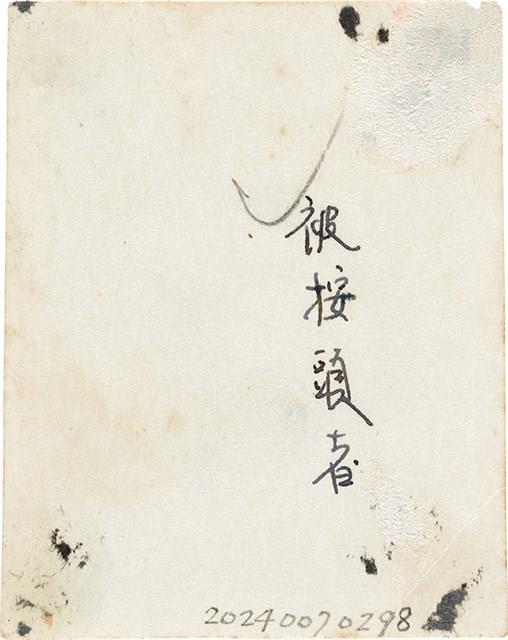 被按頭者
20240070298